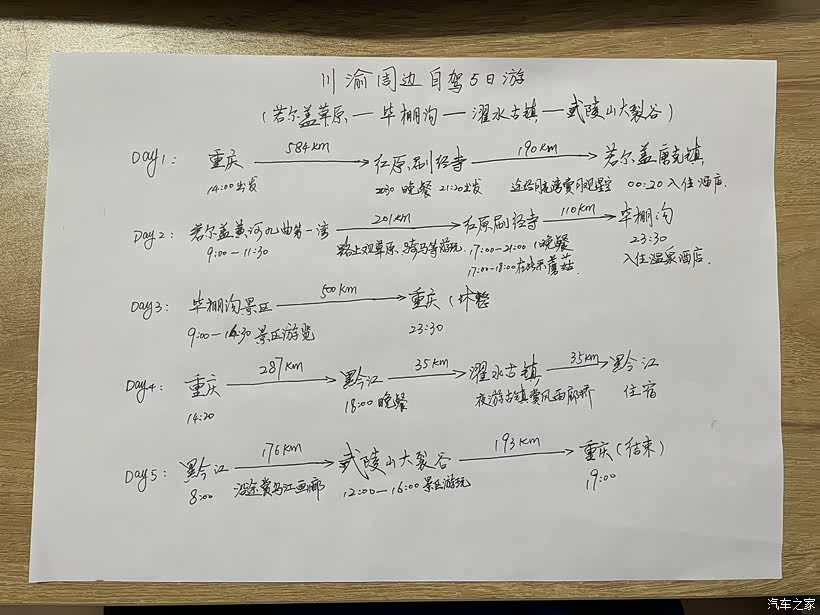 川渝周边自驾5日游
(若尔盖草原一毕棚沟一濯水古镇一武陵山大裂谷)
Day1: 重庆 584KM 红原刷经寺 190KM 若尔盖唐克镇
14:00出发 2030 晚餐 21:20出发 途经月亮湾赏月观星空 00:20 入住酒店.
Day2: 若尔盖黄河九曲第一湾 201KM 红原刷经寺 110KM 毕棚沟
9:00-11:30 路上观草原、骑马等游玩 17:00-21:00 晚餐 23:30
17:00-18:00 蘑菇 入住温泉酒店.
Day3: 毕棚沟景区 500KM 重庆(休整
9:00-14:30 景区游览 23:30
Day4: 重庆 287KM 黔江 35KM 濯水古镇 35KM 黔江
14:20 18:00 晚餐 夜游古镇赏风雨廊桥 住宿
Day5: 黔江 176KM 武陵山大裂谷 193KM 重庆(结束)
8:00 沿途赏乌江画廊 12:00-16:00 景区游玩 19:00
汽车之家